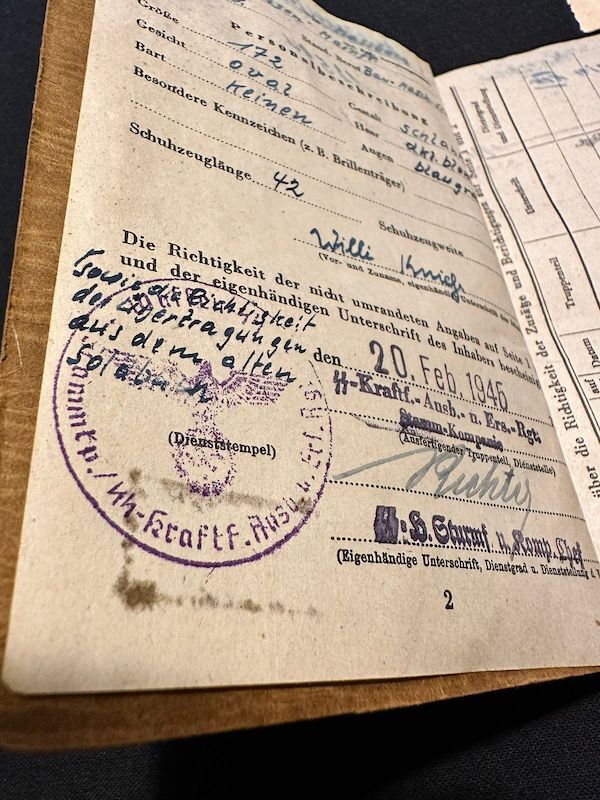 Größe 172
Personalbeschreibung
Gesicht oval Gestalt
Bart keinen Haar dkl.
Augen
Besondere Kennzeichen (z. B. Brillenträger)
Schuhzeuglänge 42 Schuhzeugweite
Willi
(Vor- und Zuname, eigenhändige Unterschrift
Die Richtigkeit der nicht umrandeten Angaben auf Seite 1
und der eigenhändigen Unterschrift des Inhabers bescheinig
sowie die Richtigkeit
der Übertragungen
aus dem alten
Soldbuch
den 20. Feb. 1945
SS-Kraftf.-Ausb.- u. Ers.-Rgt.
Stamm-Kompanie
(Ausfertigender Truppenteil, Dienststelle)
(Dienststempel)
Richter
SS-H. Sturmf. u. Komp. Chef
(Eigenhändige Unterschrift, Dienstgrad u. Dienststellung d.
SS-Kraftf. Ausb. u. Ers. Rgt.
2
über die Richtigkeit der Zusätze und Berichtigungen auf Seite 1 und 2
Datum
Truppenteil
Dienstgrad